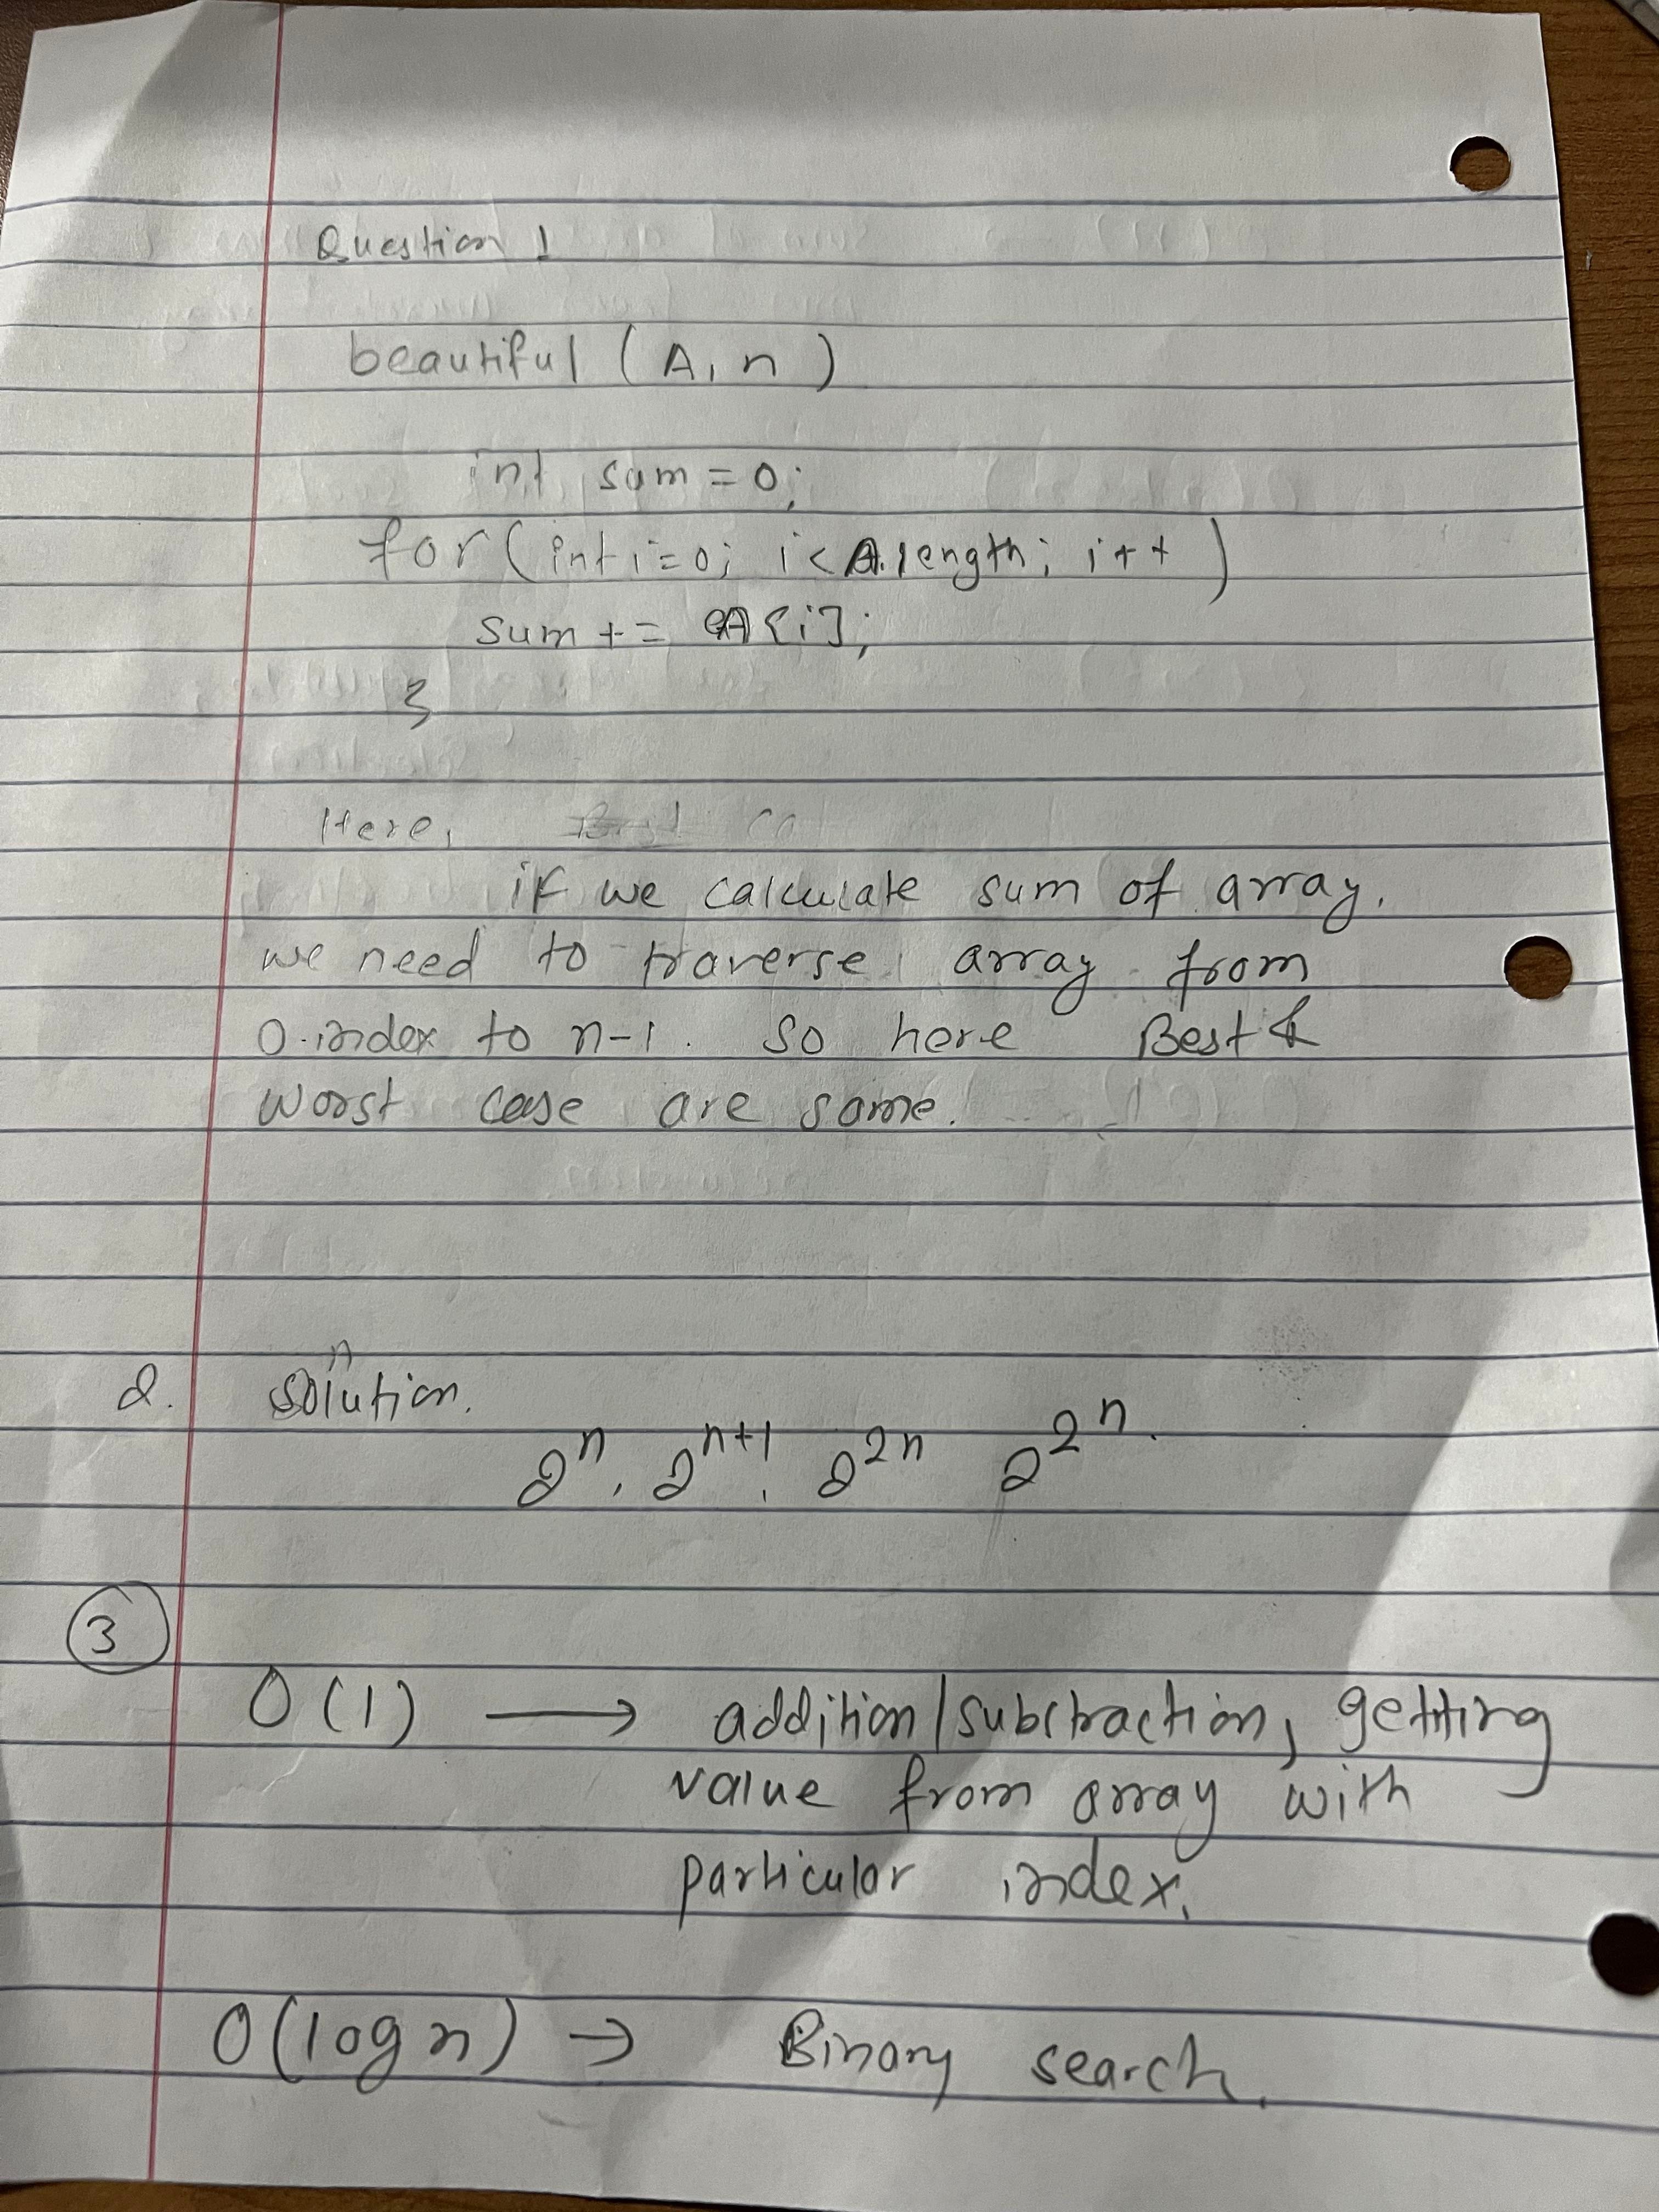 Question 1
beautiful (A, n)
int sum = 0;
for (int i=0; i<A.length; i++)
sum += A[i];
}
Here,
if we calculate sum of array.
we need to traverse array from
0.index to n-1. So here Best &
worst case are same.
2. solution.
2ⁿ, 2ⁿ⁺¹, 2²ⁿ 2^2^n.
3
O(1) → addition/substraction, getting
value from array with
particular index.
O(log n) → Binary search.